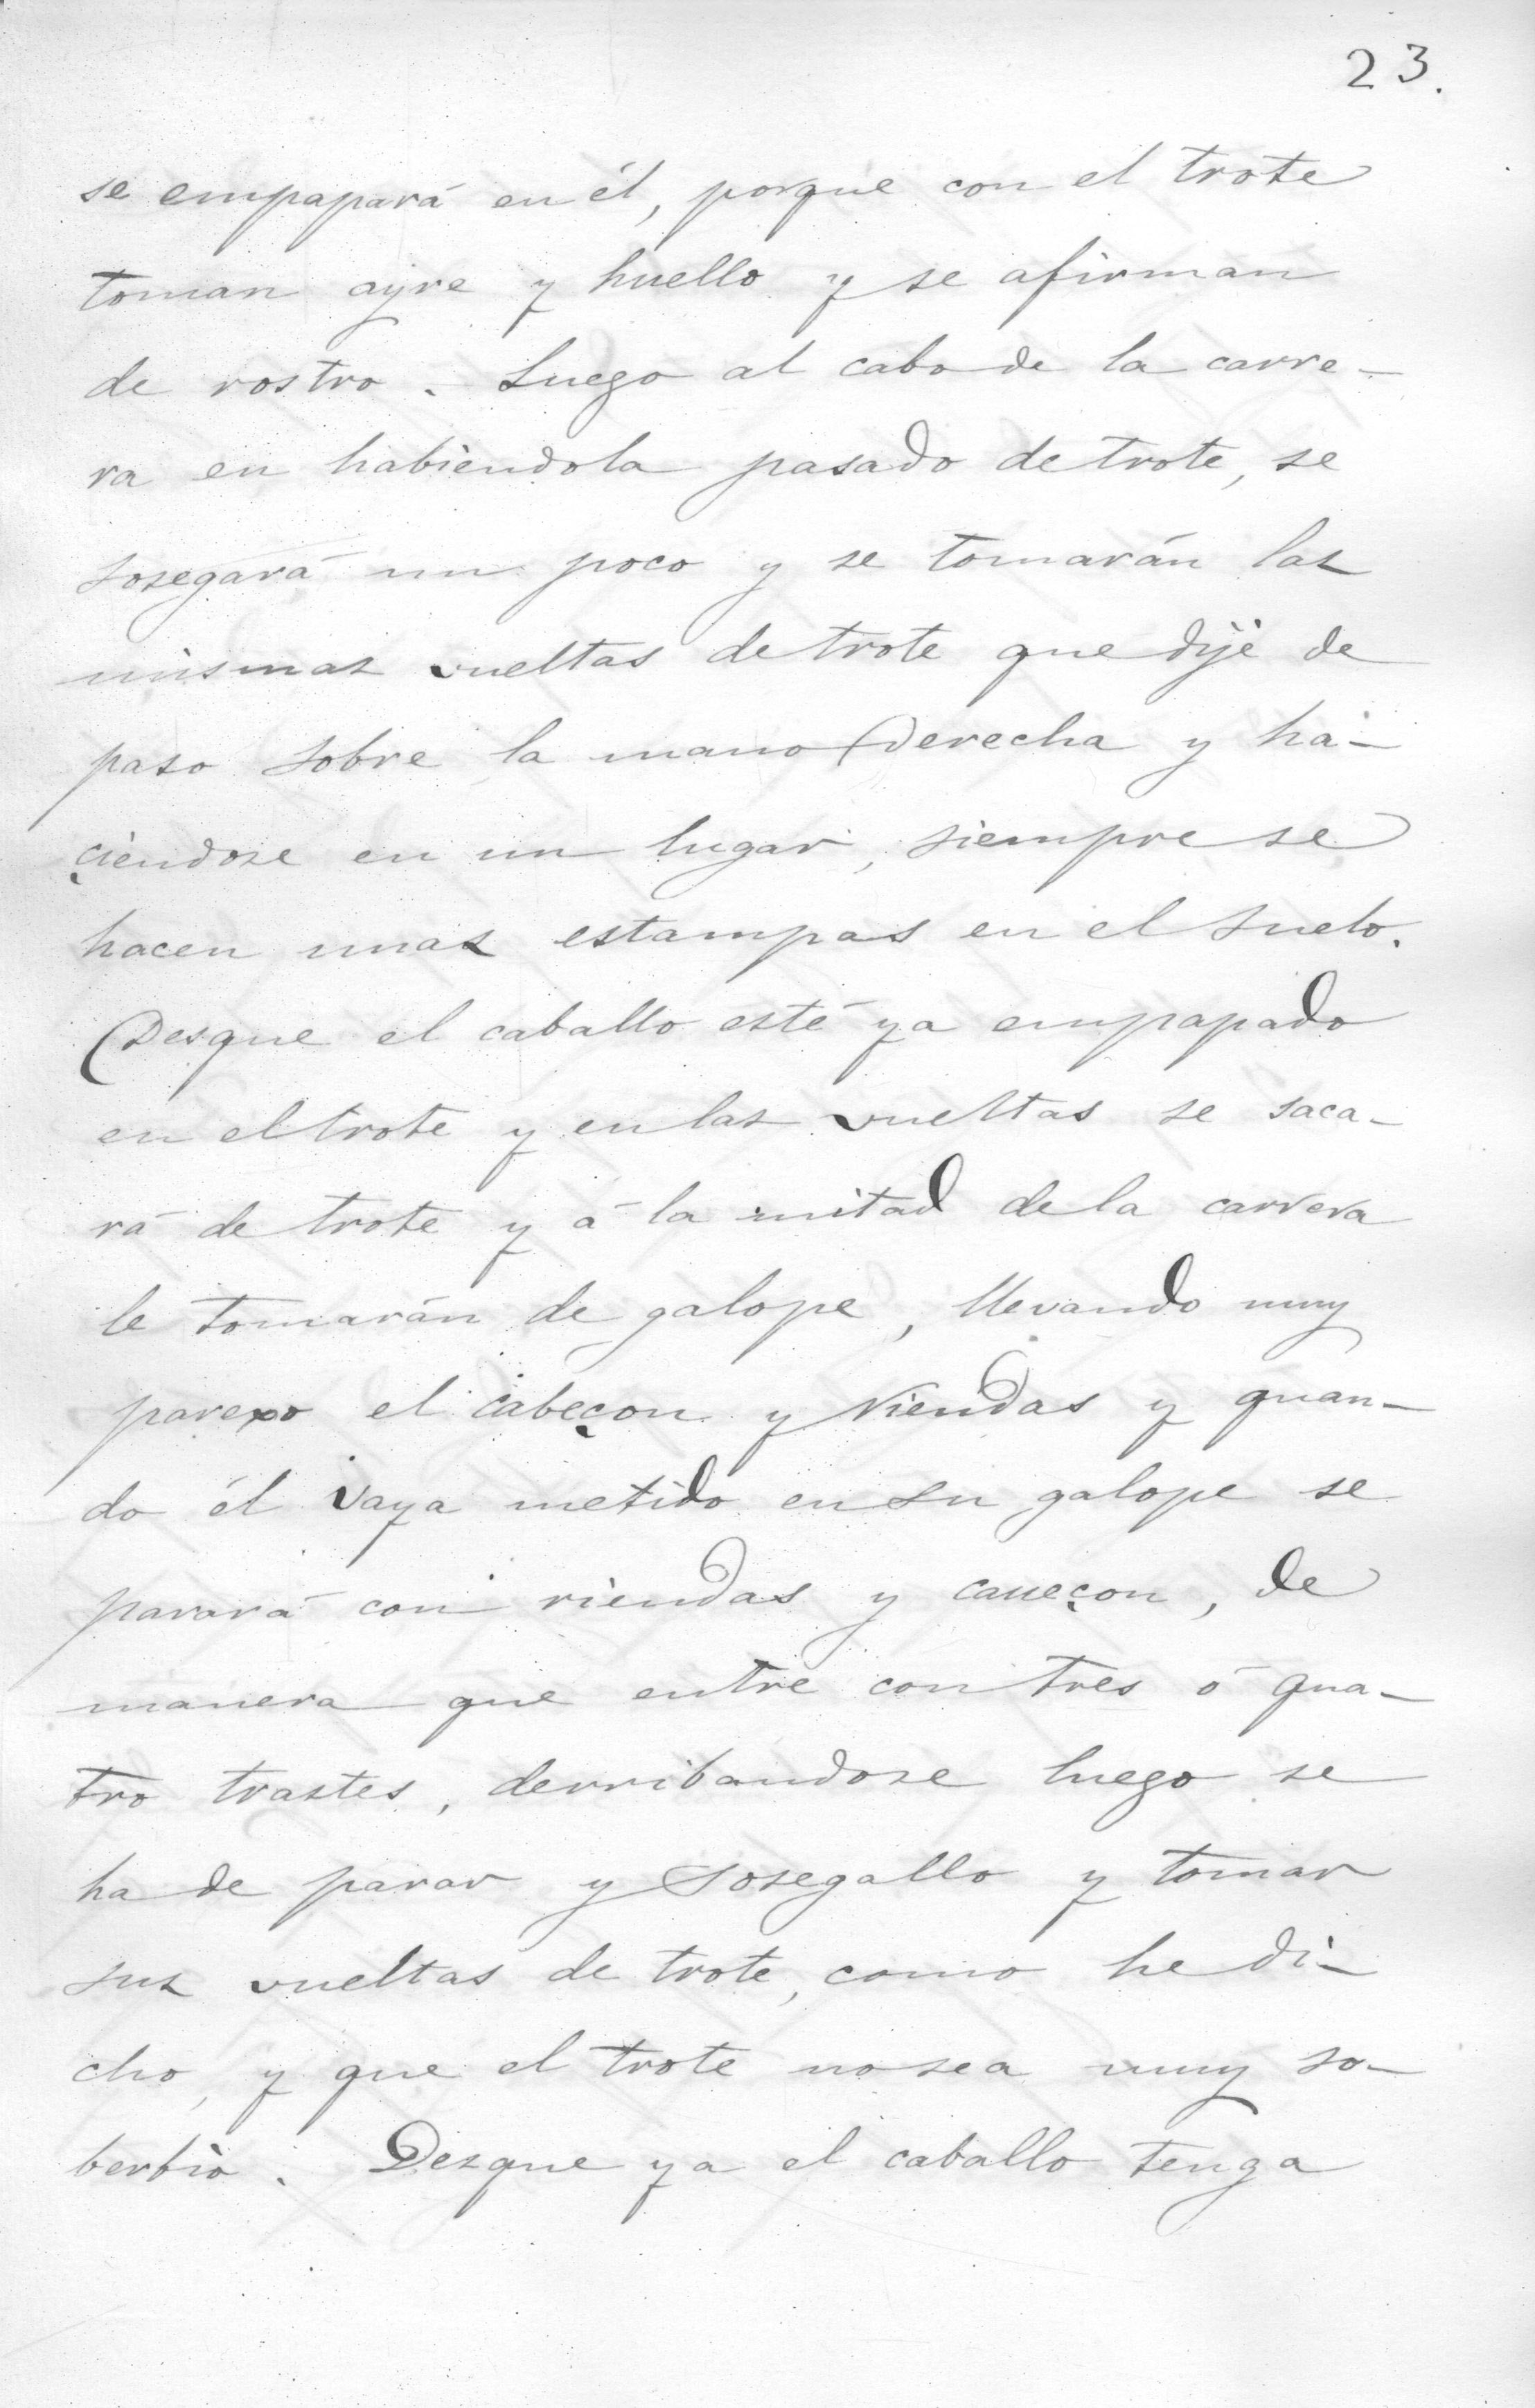 23.
se empapará en él, porque con el trote
toman ayre y huello y se afirman
de rostro. Luego al cabo de la carre-
ra en habiendola pasado de trote, se
sosegará un poco y se tomarán las
mismas vueltas de trote que dije de
paso sobre la mano Derecha y ha-
çiendose en un lugar, siempre se
hacen unas estampas en el suelo.
Desque el caballo esté ya empapado
en el trote y en las vueltas se saca-
rá de trote y á la mitad de la carrera
le tomarán de galope, llevando muy
parexo el cabeçon y Riendas y quan-
do él vaya metido en su galope se
parará con riendas y caueçon, de
manera que entre con tres ó qua-
tro trastes, derribandose luego se
ha de parar y sosegallo y tomar
sus vueltas de trote, como he di-
cho, y que el trote no sea muy so-
berbio. Desque ya el caballo tenga